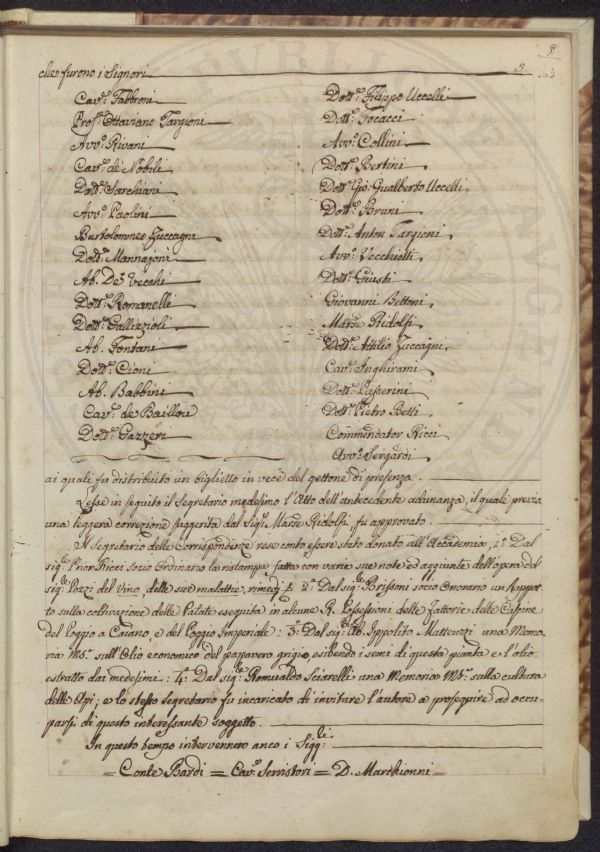 3.
che furono i Signori
Cav.e Fabbroni
Prof.e Ottaviano Targioni
Avv.o Rivani
Cav.e de' Nobili
Dott.e Sarchiani
Avv.o Paolini
Bartolommeo Zuccagni
Dott.e Mannajoni
Ab. De' Vecchi
Dott.e Romanelli
Dott.e Gallizioli
Ab. Fontani
Dott.e Cioni
Ab. Babbini
Cav.e de Baillou
Dott.e Gazzeri
Dott.e Filippo Uccelli
Dott.e Focacci
Avv.o Collini
Dott.e Bertini
Dott.e Gio: Gualberto Uccelli
Dott.e Bruni
Dott.e Anton Targioni
Avv.o Vecchietti
Dott.e Giusti
Giovanni Bettoni
March.e Ridolfi
Dott.e Attilio Zuccagni
Cav.e Inghirami
Dott.e Passerini
Dott.e Pietro Betti
Commendator Ricci
Avv.o Sergardi
ai quali fu distribuito un biglietto in vece del gettone di presenza.
Lesse in seguito il Segretario medesimo l'Atto dell'antecedente adunanza, il quale previa
una leggera correzione suggerita dal Sig.e March.e Ridolfi fu approvato.
Il Segretario delle Corrispondenze rese conto essere stato donato all'Accademia 1.o Dal
sig.e Prior Ricci socio Ordinario la ristampa fatta con varie sue note ed aggiunte dell'opera del
sig.e Pozzi del Vino, delle sue malattie, rimedj 2.o Dal sig.e Brissoni socio Onorario un Rappor-
to sulla coltivazione delle Patate eseguita in alcune R. Possessioni delle Fattorie delle Cascine
del Poggio a Caiano, e del Poggio Imperiale: 3.o Dal sig.e Ab. Ippolito Matteuzzi una Memo-
ria MS.a sull'Olio economico del papavero grigio esibendo i semi di questa pianta e l'olio
estratto dai medesimi: 4.o Dal sig.e Romualdo Sciarelli una Memoria MS.a sulla cultura
delle Api; e lo stesso segretario fu incaricato di invitare l'autore a proseguire ad occu-
parsi di questo interessante soggetto.
In questo tempo intervennero anco i Sigg.ri
= Conte Bardi = Cav.e Serristori = D. Marchionni =